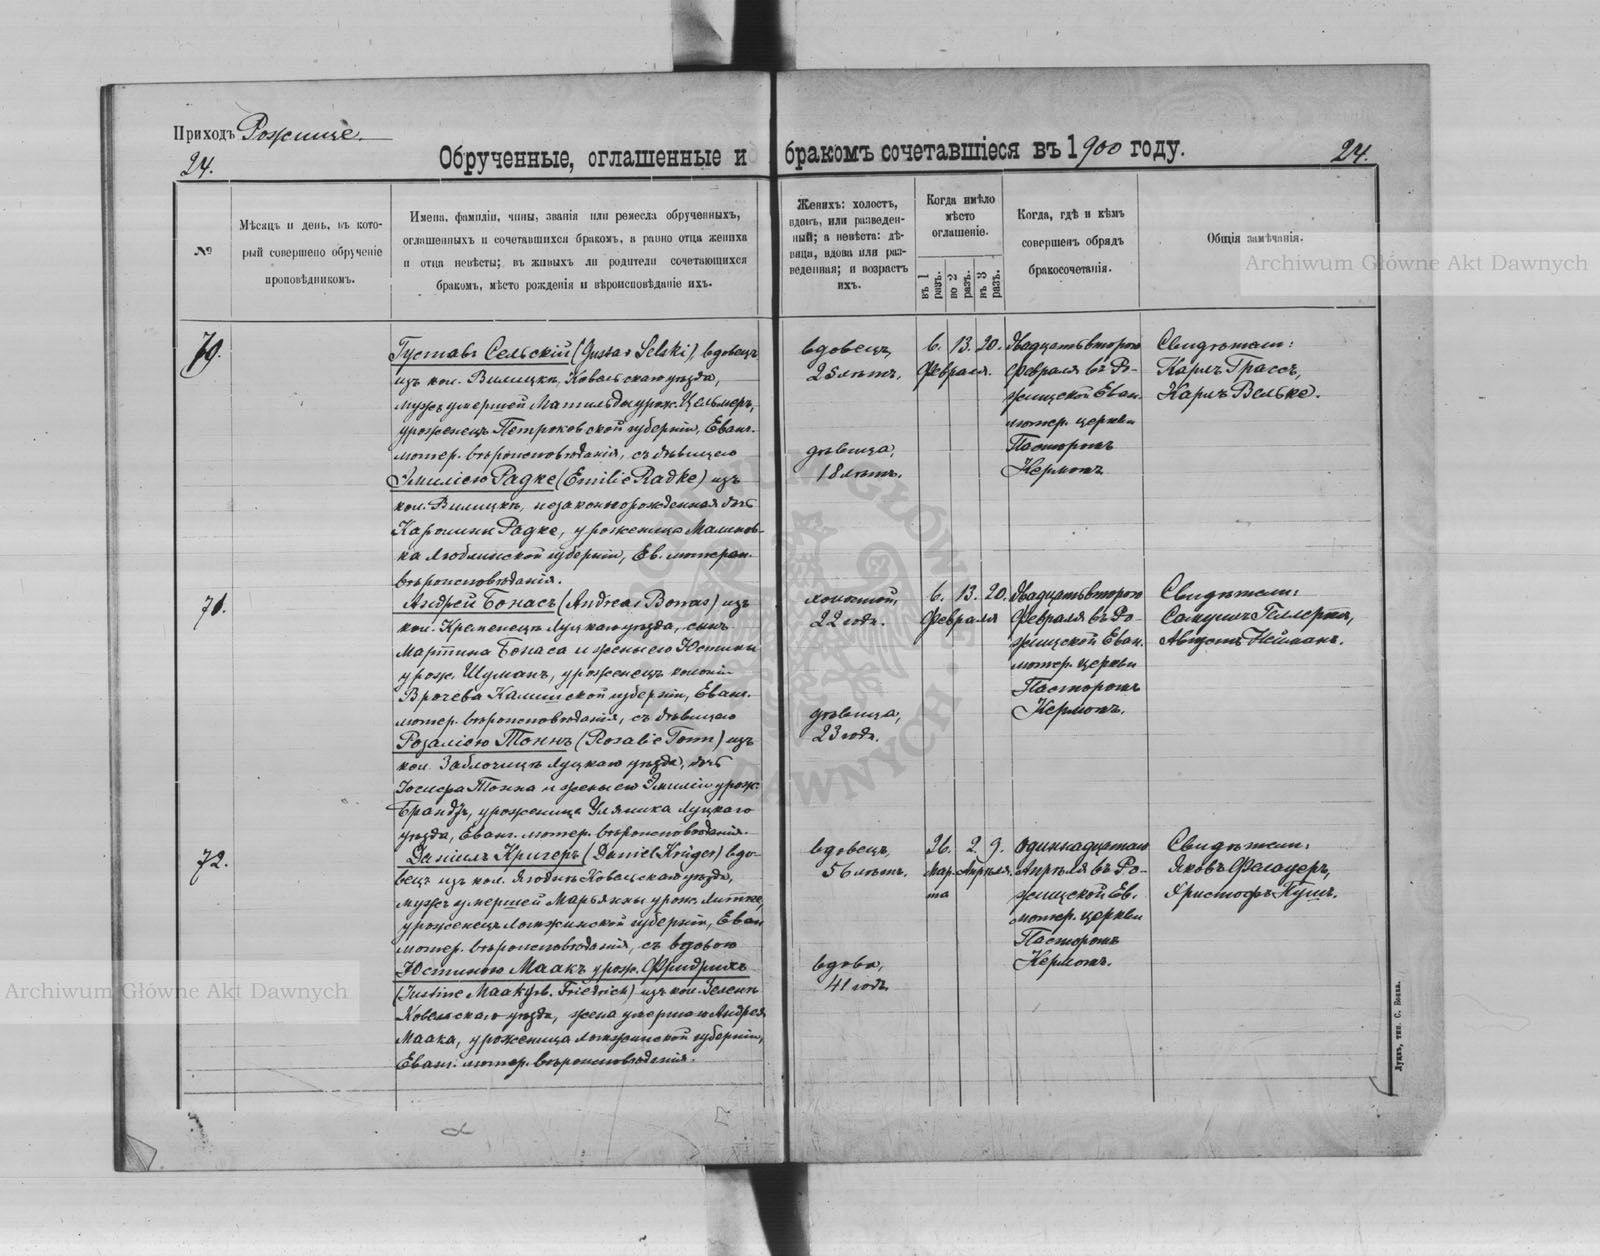 Приходъ Рожище.
24.
Обрученные, оглашенные и бракомъ сочетавшіеся въ 1900 году.
24.
№
Мѣсяцъ и день, въ кото-
рый совершено обрученіе
проповѣдникомъ.
Имена, фамиліи, чины, званія или ремесла обрученныхъ,
оглашенныхъ и сочетавшихся бракомъ, а равно отца жениха
и отца невѣсты; въ живыхъ ли родители сочетающихся
бракомъ, мѣсто рожденія и вѣроисповѣданіе ихъ.
Женихъ: холостъ,
вдовъ, или разведен-
ный; а невѣста: дѣ-
вица, вдова или раз-
веденная; и возрастъ
ихъ.
Когда имѣло
мѣсто
оглашеніе.
въ 1 разъ.
во 2 разъ.
въ 3 разъ.
Когда, гдѣ и кѣмъ
совершенъ обрядъ
бракосочетанія.
Общія замѣчанія.
Archiwum Główne Akt Dawnych
70.
Густавъ Сельскій (Gustav Selski) вдовецъ
изъ кол. Вилицкъ, Ковельскаго уѣзда,
мужъ умершей Матильды урож. Цельмеръ,
уроженецъ Петроковской губерніи, Еванг.
лютер. вѣроисповѣданія, съ дѣвицею
Эмиліею Радке (Emilie Radke) изъ
кол. Вилицкъ, незаконнорожденная дочь
Каролины Радке, уроженица Малинов-
ка Люблинской губерніи, Ев. лютеран.
вѣроисповѣданія.
вдовецъ,
25 лѣтъ.
дѣвица,
18 лѣтъ.
6. 13. 20.
Февраля.
Двадцать второго
Февраля въ Ро-
жищской Еван.
лютер. церкви
Пасторомъ
Кермомъ
Свидѣтели:
Карлъ Грассъ,
Карлъ Вельке.
71.
Андрей Бонасъ (Andreas Bonas) изъ
кол. Кременецъ Луцкаго уѣзда, сынъ
Мартина Бонаса и жены его Юстины
урож. Шуманъ, уроженецъ колоніи
Врочева Калишской губерніи, Еванг.
лютер. вѣроисповѣданія, съ дѣвицею
Розаліею Тоннъ (Rosalie Tonn) изъ
кол. Заблочицъ Луцкаго уѣзда, дочь
Іосифа Тонна и жены его Эмиліи урож.
Брандтъ, уроженица Улямика Луцкаго
уѣзда, Еванг. лютер. вѣроисповѣданія.
холостой,
22 годъ.
дѣвица,
23 годъ.
6. 13. 20.
Февраля
Двадцать второго
Февраля въ Ро-
жищской Еван.
лютер. церкви
Пасторомъ
Кермомъ.
Свидѣтели:
Самуилъ Гиллертъ,
Августъ Нейманъ.
72.
Даніилъ Кригеръ (Daniel Krüger) вдо-
вецъ изъ кол. Ягодинъ Ковельскаго уѣзда,
мужъ умершей Марьянны урож. Литке,
уроженецъ Ломжинской губерніи, Еван.
лютер. вѣроисповѣданія, съ вдовою
Юстиною Маакъ урож. Фридрихъ
(Justine Maak geb. Friedrich) изъ кол. Зеленъ
Ковельскаго уѣзда, жена умершаго Андрея
Маака, уроженица Ломжинской губерніи,
Еванг. лютер. вѣроисповѣданія.
вдовецъ,
56 лѣтъ.
вдова,
41 годъ
26. 2. 9.
Мар- Апрѣля.
та
Одиннадцатаго
Апрѣля въ Ро-
жищской Ев.
лютер. церкви
Пасторомъ
Кермомъ.
Свидѣтели:
Яковъ Фельдеръ,
Христофъ Пушъ.
Archiwum Główne Akt Dawnych
Луцкъ, тип. С. Бонка.